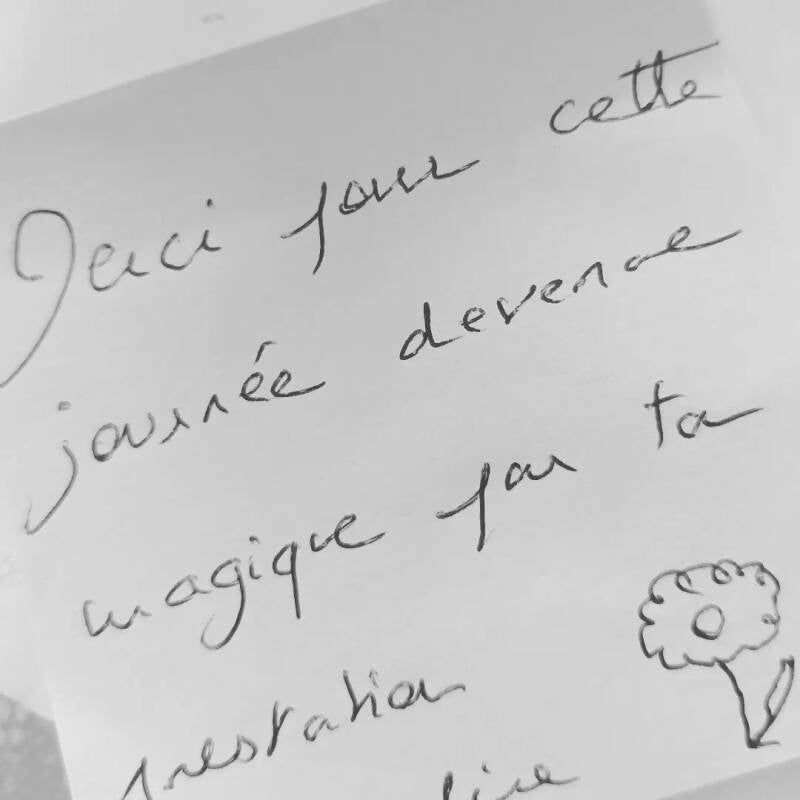 Merci pour cette
journée devenue
magique par ta
prestation